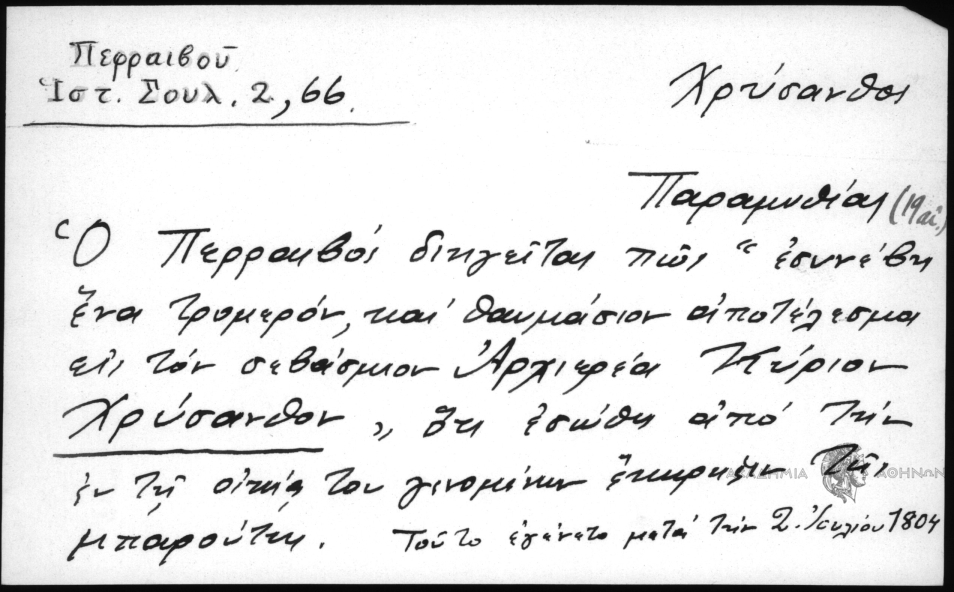 Περραιβοῦ.
Ἱστ. Σουλ. 2, 66.
Χρύσανθος
Παραμυθίας (19 αἰ.)
Ὁ Περραιβός διηγεῖται πῶς "ἐσυνέβη
ἕνα τρομερόν, καί θαυμάσιον ἀποτέλεσμα
εἰς τόν σεβάσμιον Ἀρχιερέα Κύριον
Χρύσανθον", ὅτι ἐσώθη ἀπό τήν
ἐν τῇ οἰκίᾳ του γενομένην ἔκρηξιν τῆς
μπαρούτης. Τοῦτο ἐγένετο μετά τήν 2 Ἰουλίου 1804
ΑΚΑΔΗΜΙΑ ΑΘΗΝΩΝ